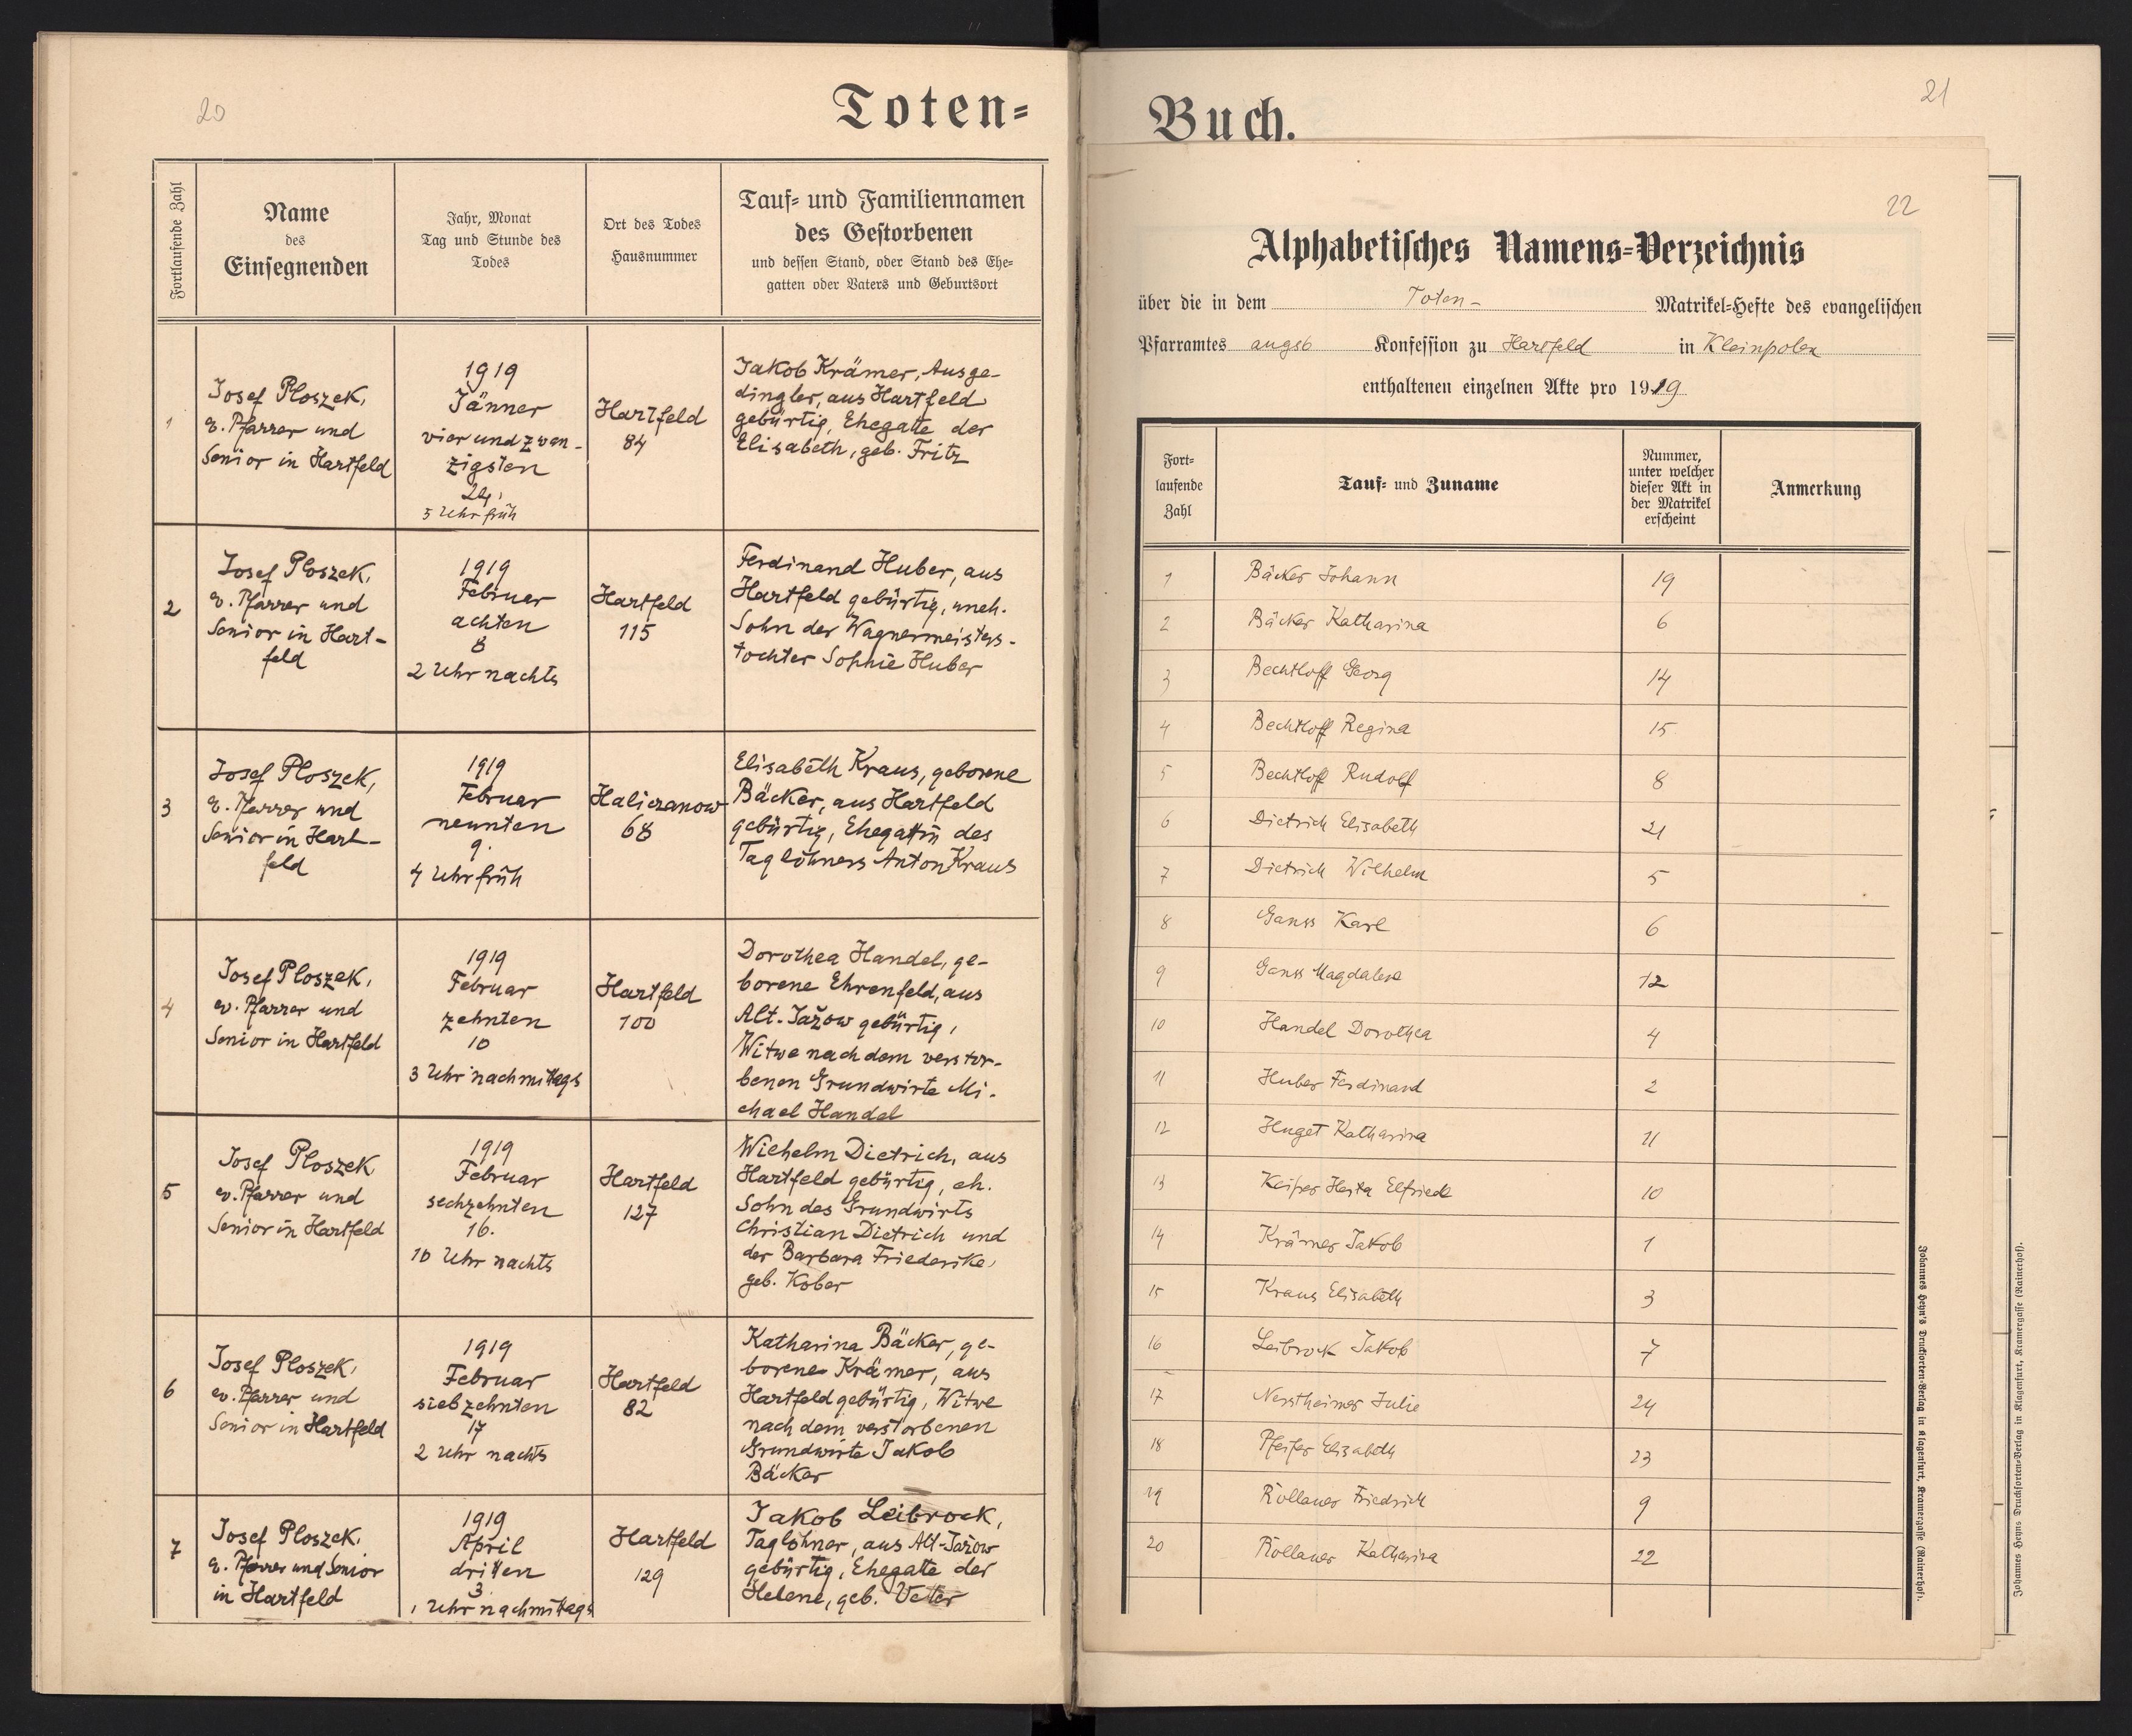 20
Toten=
Fortlaufende Zahl
Name
des
Einsegnenden
Jahr, Monat
Tag und Stunde des
Todes
Ort des Todes
Hausnummer
Tauf= und Familiennamen
des Gestorbenen
und dessen Stand, oder Stand des Ehe=
gatten oder Vaters und Geburtsort
1
Josef Ploszek,
ev. Pfarrer und
Senior in Hartfeld
1919
Jänner
vierundzwan-
zigsten
24.
5 Uhr früh
Hartfeld
84
Jakob Krämer, Ausge-
dingler, aus Hartfeld
gebürtig, Ehegatte der
Elisabeth, geb. Fritz
2
Josef Ploszek,
ev. Pfarrer und
Senior in Hart-
feld
1919
Februar
achten
8
2 Uhr nachts
Hartfeld
115
Ferdinand Huber, aus
Hartfeld gebürtig, uneh.
Sohn der Wagnermeisters-
tochter Sophie Huber
3
Josef Ploszek,
ev. Pfarrer und
Senior in Hart-
feld
1919
Februar
neunten
9.
4 Uhr früh
Haliczanow
68
Elisabeth Kraus, geborene
Bäcker, aus Hartfeld
gebürtig, Ehegattin des
Taglöhners Anton Kraus
4
Josef Ploszek,
ev. Pfarrer und
Senior in Hartfeld
1919
Februar
zehnten
10
3 Uhr nachmittags
Hartfeld
100
Dorothea Handel, ge-
borene Ehrenfeld, aus
Alt-Jažow gebürtig,
Witwe nach dem verstor-
benen Grundwirte Mi-
chael Handel
5
Josef Ploszek
ev. Pfarrer und
Senior in Hartfeld
1919
Februar
sechzehnten
16.
10 Uhr nachts
Hartfeld
127
Wilhelm Dietrich, aus
Hartfeld gebürtig, eh.
Sohn des Grundwirts
Christian Dietrich und
der Barbara Friederike,
geb. Kober
6
Josef Ploszek,
ev. Pfarrer und
Senior in Hartfeld
1919
Februar
siebzehnten
17
2 Uhr nachts
Hartfeld
82
Katharina Bäcker, ge-
borene Krämer, aus
Hartfeld gebürtig, Witwe
nach dem verstorbenen
Grundwirte Jakob
Bäcker
7
Josef Ploszek,
ev. Pfarrer und Senior
in Hartfeld
1919
April
dritten
3.
1 Uhr nachmittags
Hartfeld
129
Jakob Leibrock,
Taglöhner, aus Alt-Jažow
gebürtig, Ehegatte der
Helene, geb. Vetter
21
Buch.
22
Alphabetisches Namens=Verzeichnis
über die in dem Toten- Matrikel=Hefte des evangelischen
Pfarramtes augsb Konfession zu Hartfeld in Kleinpolen
enthaltenen einzelnen Akte pro 1919
Fort=
laufende
Zahl
Tauf= und Zuname
Nummer,
unter welcher
dieser Akt in
der Matrikel
erscheint
Anmerkung
1 Bäcker Johann 19
2 Bäcker Katharina 6
3 Bechtloff Georg 14
4 Bechtloff Regina 15
5 Bechtloff Rudolf 8
6 Dietrich Elisabeth 21
7 Dietrich Wilhelm 5
8 Ganss Karl 6
9 Ganss Magdalene 12
10 Handel Dorothea 4
11 Huber Ferdinand 2
12 Huget Katharina 11
13 Keiper Herta Elfriede 10
14 Krämer Jakob 1
15 Kraus Elisabeth 3
16 Leibrock Jakob 7
17 Nerstheimer Julie 24
18 Pfeifer Elisabeth 23
19 Rollauer Friedrich 9
20 Rollauer Katharina 22
Johannes Heyn's Drucksorten=Verlag in Klagenfurt, Kramergasse (Rainerhof).
Johannes Heyns Drucksorten=Verlag in Klagenfurt, Kramergasse (Rainerhof).